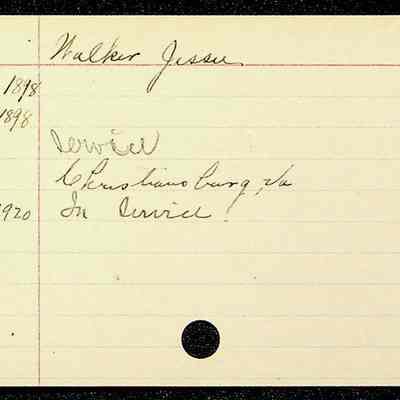 Walker Jessie
1898
1898
Service
Christiansburg, Va
1920 In Service.